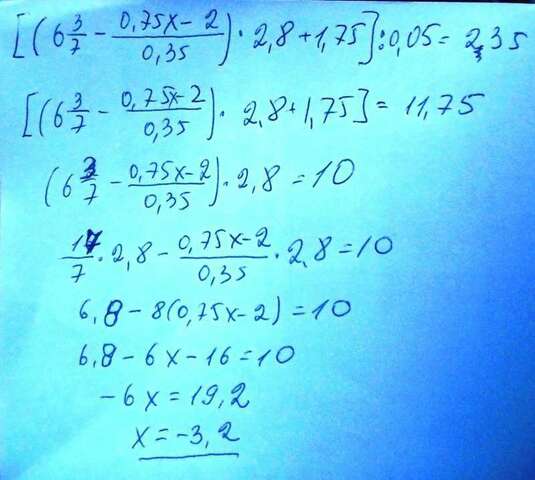 [(6 3/7 - (0,75x-2)/0,35) · 2,8+1,75]:0,05= 2,35
[(6 3/7 - (0,75x-2)/0,35) · 2,8+1,75]= 11,75
(6 3/7 - (0,75x-2)/0,35) · 2,8 =10
17/7 · 2,8 - (0,75x-2)/0,35 · 2,8=10
6,8 - 8(0,75x-2)=10
6,8-6x-16=10
-6x=19,2
x=-3,2